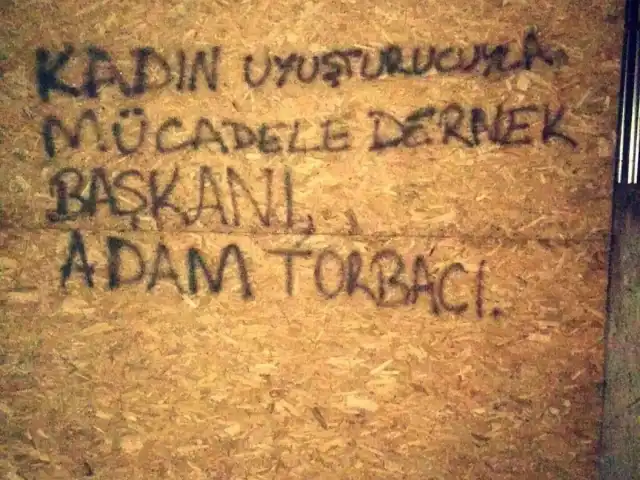 KADIN UYUŞTURUCUYLA
MÜCADELE DERNEK
BAŞKANI,
ADAM TORBACI.